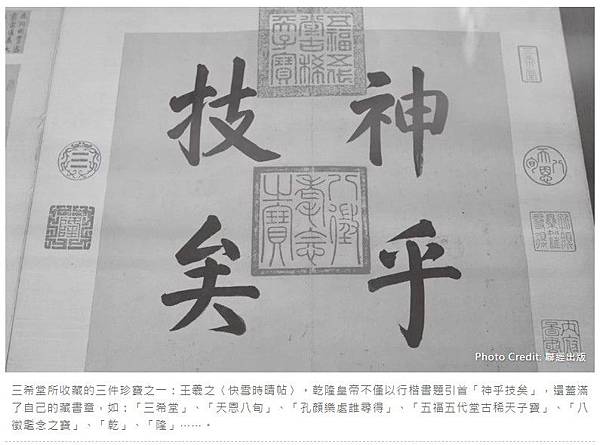 五福五代
堂古稀天
子寶
神乎
技矣
八徵
耄念
之寶
天恩八旬
三希堂
Photo Credit: 聯經出版
三希堂所收藏的三件珍寶之一：王羲之〈快雪時晴帖〉，乾隆皇帝不僅以行楷書題引首「神乎技矣」，還蓋滿
了自己的藏書章，如：「三希堂」、「天恩八旬」、「孔顏樂處誰尋得」、「五福五代堂古稀天子寶」、「八
徵耄念之寶」、「乾」、「隆」……。